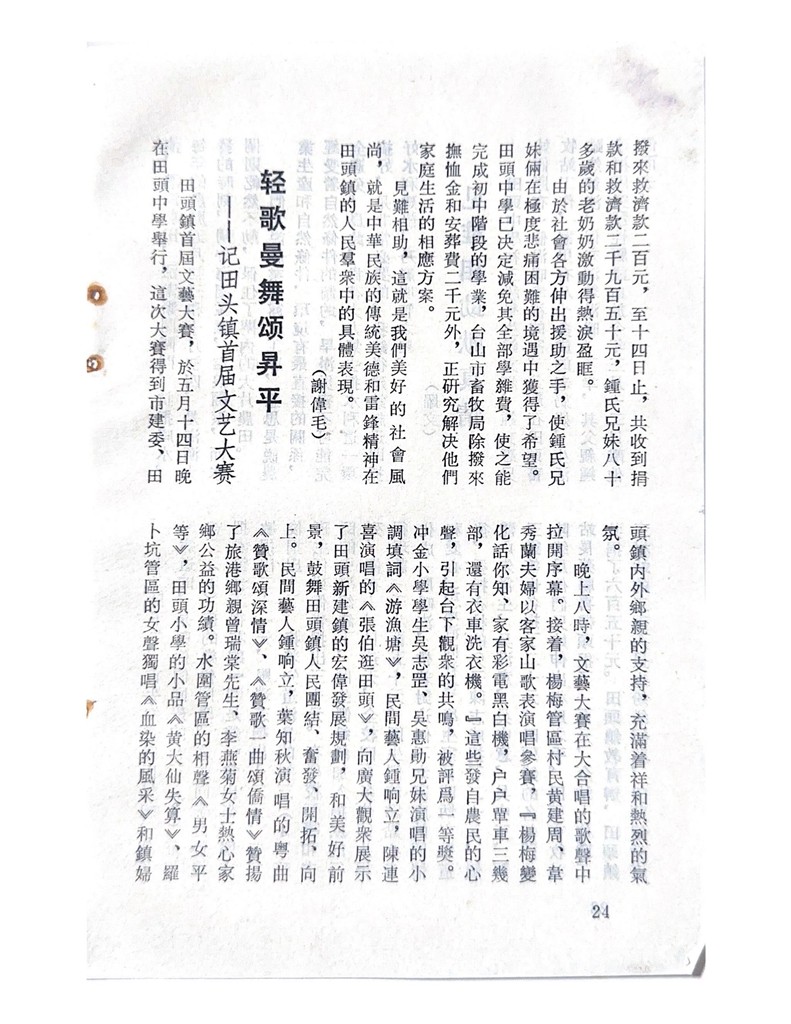 撥來救濟款二百元，至十四日止，共收到捐
款和救濟款二千九百五十元，鍾氏兄妹八十
多歲的老奶奶激動得熱淚盈眶。
由於社會各方伸出援助之手，使鍾氏兄
妹倆在極度悲痛困難的境遇中獲得了希望。
田頭中學已決定減免其全部學雜費，使之能
完成初中階段的學業，台山市畜牧局除撥來
撫恤金和安葬費二千元外，正研究解決他們
家庭生活的相應方案。
見難相助，這就是我們美好的社會風
尚，就是中華民族的傳統美德和雷鋒精神在
田頭鎮的人民羣衆中的具體表現。
（謝偉毛）
轻歌曼舞颂昇平
——记田头镇首届文艺大赛
田頭鎮首屆文藝大賽，於五月十四日晚
在田頭中學舉行，這次大賽得到市建委、田
頭鎮內外鄉親的支持，充滿着祥和熱烈的氣
氛。
晚上八時，文藝大賽在大合唱的歌聲中
拉開序幕。接着，楊梅管區村民黄建周、韋
秀蘭夫婦以客家山歌表演唱參賽，『楊梅變
化話你知，家有彩電黑白機，户户單車三幾
部，還有衣車洗衣機。』這些發自農民的心
聲，引起台下觀衆的共鳴，被評爲一等獎。
冲金小學學生吴志罡、吴惠勛兄妹演唱的小
調填詞《游漁塘》，民間藝人鍾响立，陳連
喜演唱的《張伯逛田頭》，向廣大觀衆展示
了田頭新建鎮的宏偉發展規劃，和美好前
景，鼓舞田頭鎮人民團結、奮發、開拓、向
上。民間藝人鍾响立，葉知秋演唱的粤曲
《贊歌頌深情》、《贊歌一曲頌僑情》贊揚
了旅港鄉親曾瑞棠先生、李燕菊女士熱心家
鄉公益的功績。水圍管區的相聲《男女平
等》，田頭小學的小品《黄大仙失算》、羅
卜坑管區的女聲獨唱《血染的風采》和鎮婦
24